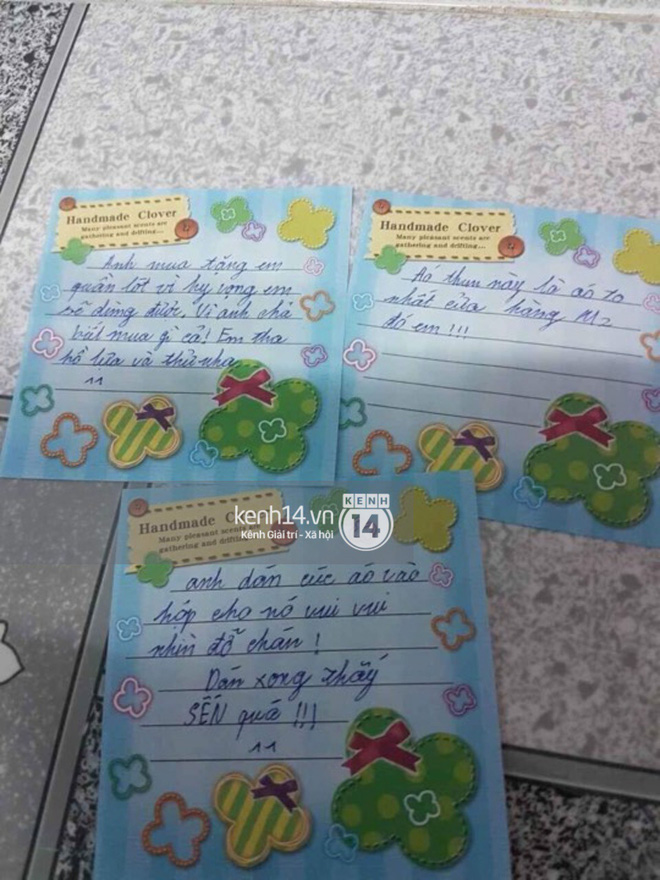 Handmade Clover
Many pleasant scents are
gathering and drifting...
Anh mua tặng em
quần lót vì hy vọng em
sẽ dùng được. Vì anh chả
biết mua gì cả! Em tha
hồ lựa và thử nha
^^
Handmade Clover
Many pleasant scents are
gathering and drifting...
Áo thun này là áo to
nhất cửa hàng M2
đó em !!!
Handmade Clover
Many pleasant scents are
gathering and drifting...
kenh14.vn
Kênh Giải trí - Xã hội
KENH
14
anh dán cúc áo vào
hộp cho nó vui vui
nhìn đỡ chán !
Dán xong thấy
SẾN quá !!!
^^